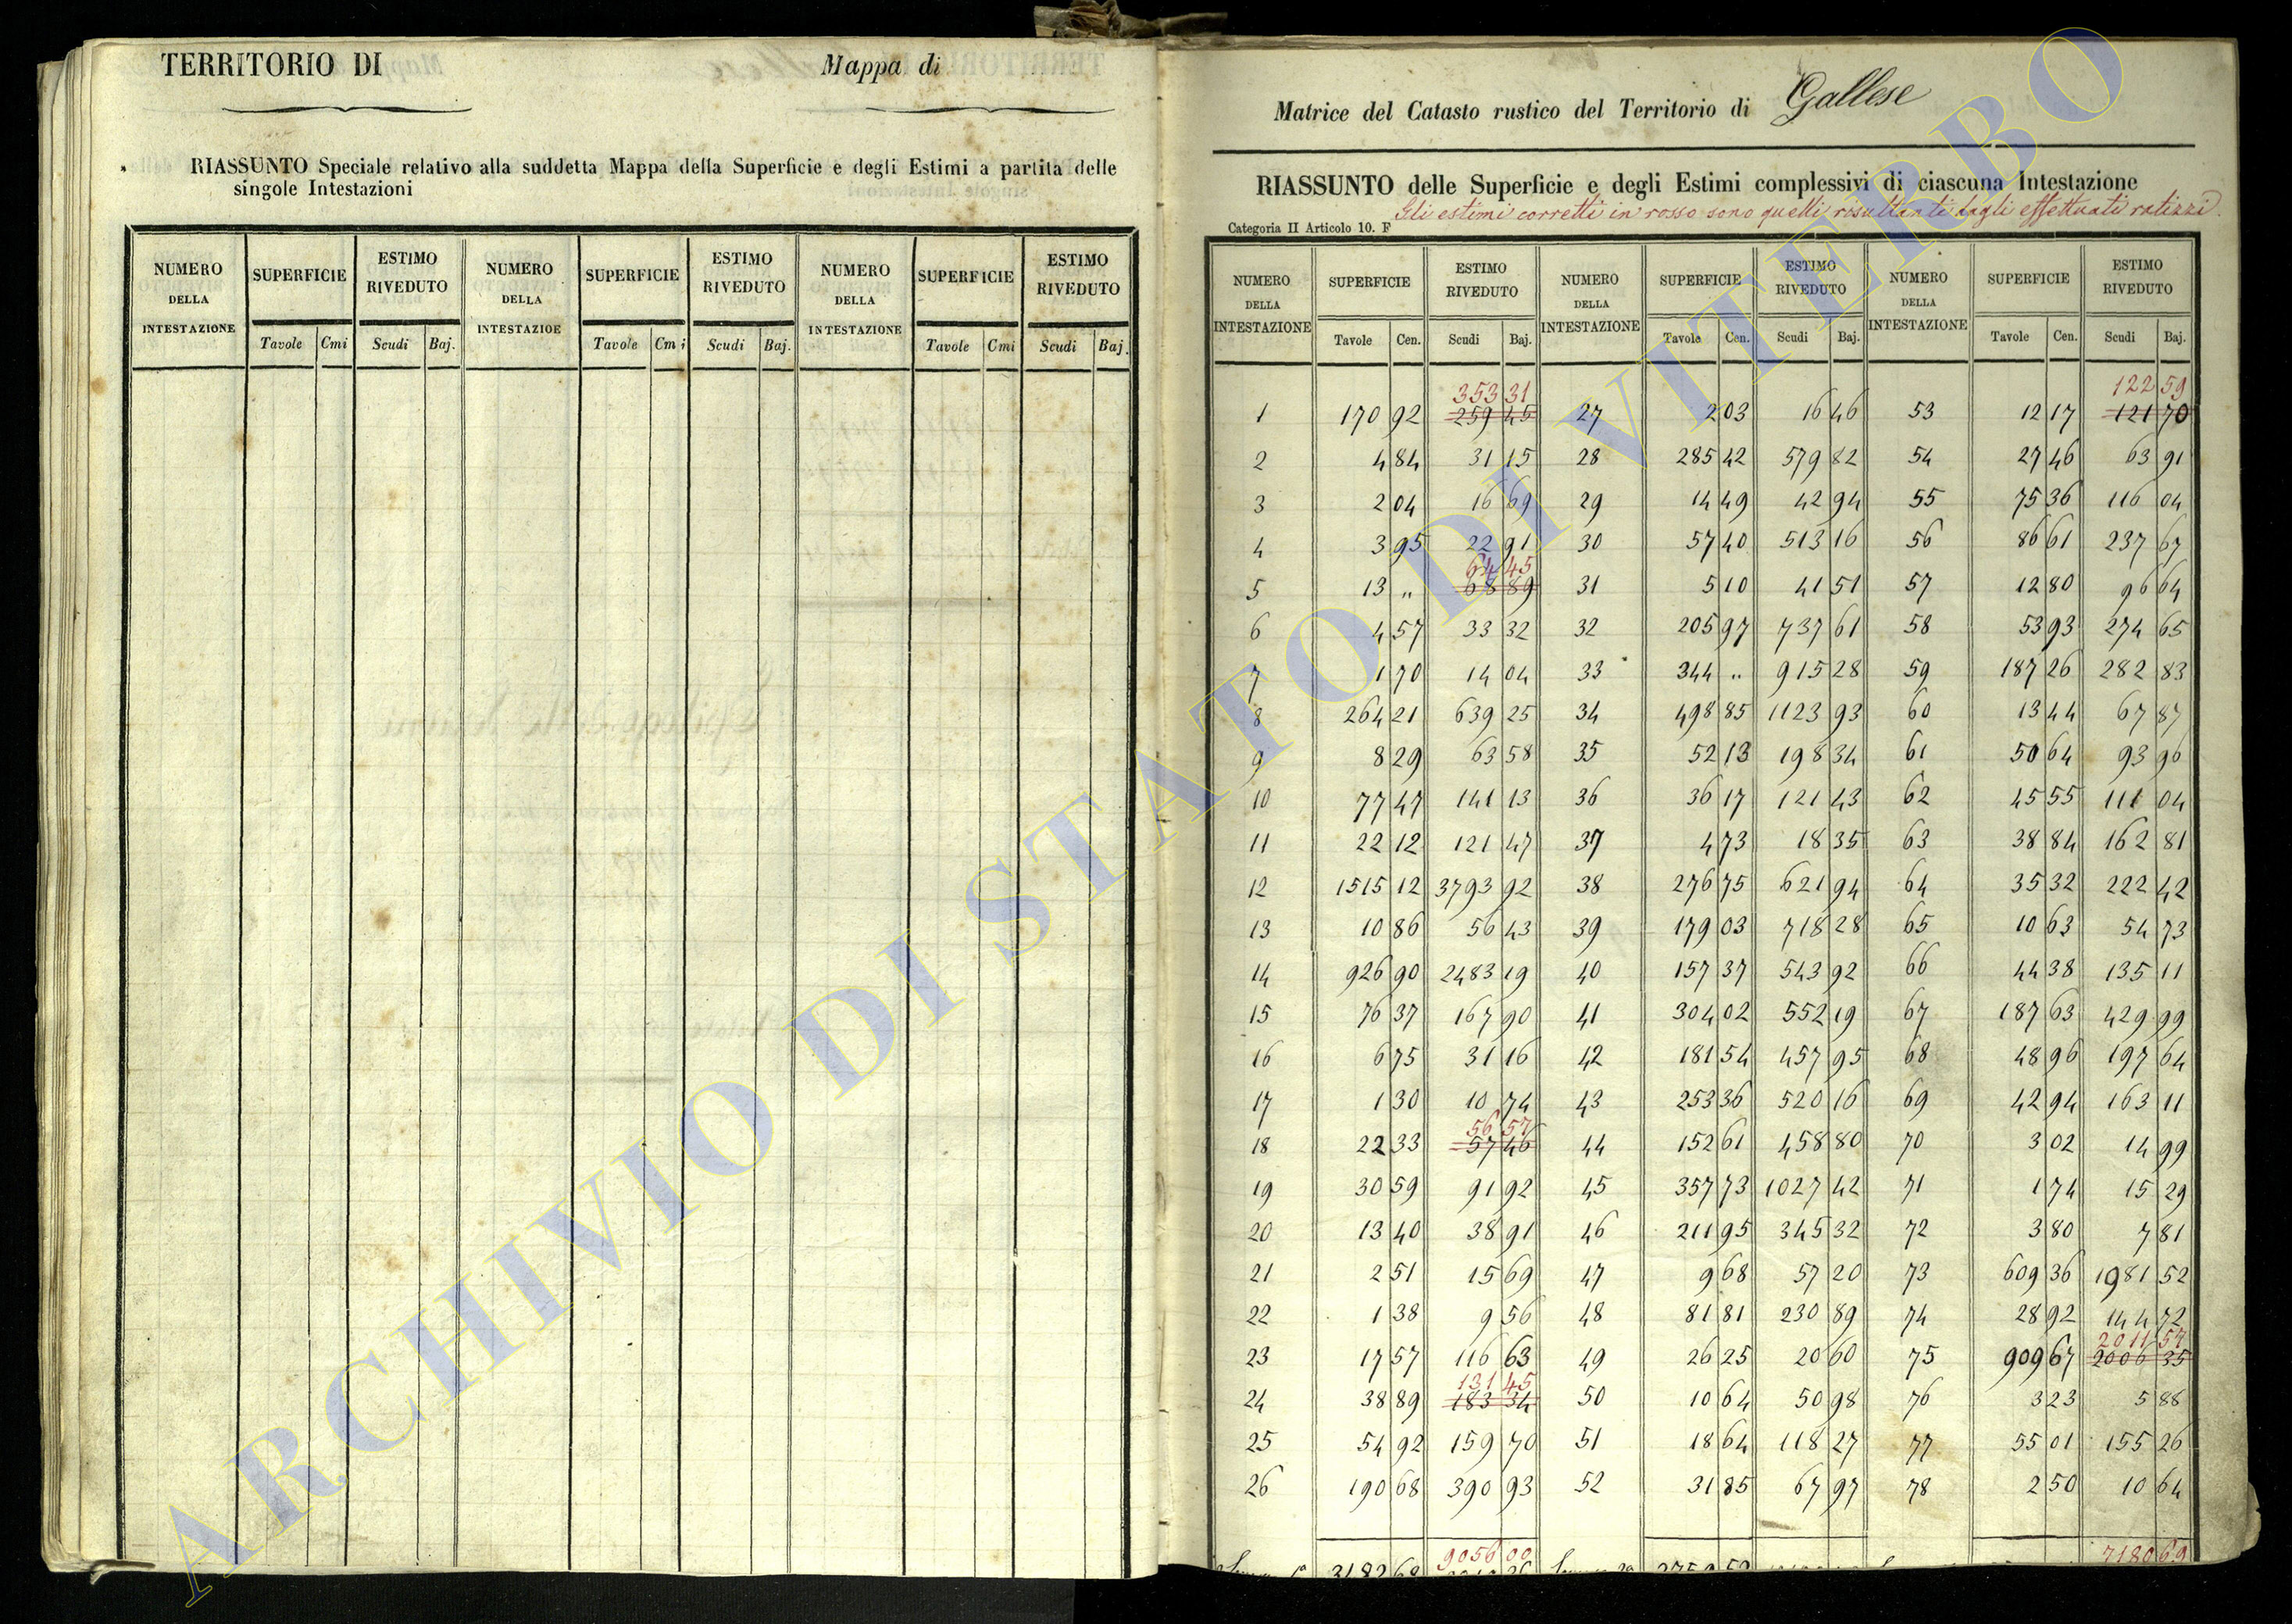 TERRITORIO DI Mappa di
RIASSUNTO Speciale relativo alla suddetta Mappa della Superficie e degli Estimi a partita delle
singole Intestazioni
NUMERO DELLA INTESTAZIONE SUPERFICIE ESTIMO RIVEDUTO NUMERO DELLA INTESTAZIOE SUPERFICIE ESTIMO RIVEDUTO NUMERO DELLA INTESTAZIONE SUPERFICIE ESTIMO RIVEDUTO
Tavole Cmi Scudi Baj. Tavole Cmi Scudi Baj. Tavole Cmi Scudi Baj.
Matrice del Catasto rustico del Territorio di Gallese
RIASSUNTO delle Superficie e degli Estimi complessivi di ciascuna Intestazione
Gli estimi corretti in rosso sono quelli risultanti dagli effettuati ratizzi.
Categoria II Articolo 10. F
NUMERO DELLA INTESTAZIONE SUPERFICIE ESTIMO RIVEDUTO NUMERO DELLA INTESTAZIONE SUPERFICIE ESTIMO RIVEDUTO NUMERO DELLA INTESTAZIONE SUPERFICIE ESTIMO RIVEDUTO
Tavole Cen. Scudi Baj. Tavole Cen. Scudi Baj. Tavole Cen. Scudi Baj.
353 31 122 59
1 170 92 259 45 27 2 03 16 46 53 12 17 121 70
2 4 84 31 15 28 285 42 579 82 54 27 46 63 91
3 2 04 16 69 29 14 49 42 94 55 75 36 116 04
4 3 95 22 91 30 57 40 513 16 56 86 61 237 67
64 45
5 13 „ 68 89 31 5 10 41 51 57 12 80 96 64
6 4 57 33 32 32 205 97 737 61 58 53 93 274 65
7 1 70 14 04 33 344 „ 915 28 59 187 26 282 83
8 264 21 639 25 34 498 85 1123 93 60 13 44 67 87
9 8 29 63 58 35 52 13 198 34 61 50 64 93 96
10 77 47 141 13 36 36 17 121 43 62 45 55 111 04
11 22 12 121 47 37 4 73 18 35 63 38 84 162 81
12 1515 12 3793 92 38 276 75 621 94 64 35 32 222 42
13 10 86 56 43 39 179 03 718 28 65 10 63 54 73
14 926 90 2483 19 40 157 37 543 92 66 44 38 135 11
15 76 37 167 90 41 304 02 552 19 67 187 63 429 99
16 6 75 31 16 42 181 54 457 95 68 48 96 197 64
17 1 30 10 74 43 253 36 520 16 69 42 94 163 11
56 57
18 22 33 57 46 44 152 61 458 80 70 3 02 14 99
19 30 59 91 92 45 357 73 1027 42 71 1 74 15 29
20 13 40 38 91 46 211 95 345 32 72 3 80 7 81
21 2 51 15 69 47 9 68 57 20 73 609 36 1981 52
22 1 38 9 56 48 81 81 230 89 74 28 92 144 72
2011 57
23 17 57 116 63 49 26 25 20 60 75 909 67 2006 35
131 45
24 38 89 183 34 50 10 64 50 98 76 3 23 5 88
25 54 92 159 70 51 18 64 118 27 77 55 01 155 26
26 190 68 390 93 52 31 85 67 97 78 2 50 10 64
9056 00 7180 69
3482 68 3759 52
ARCHIVIO DI STATO DI VITERBO